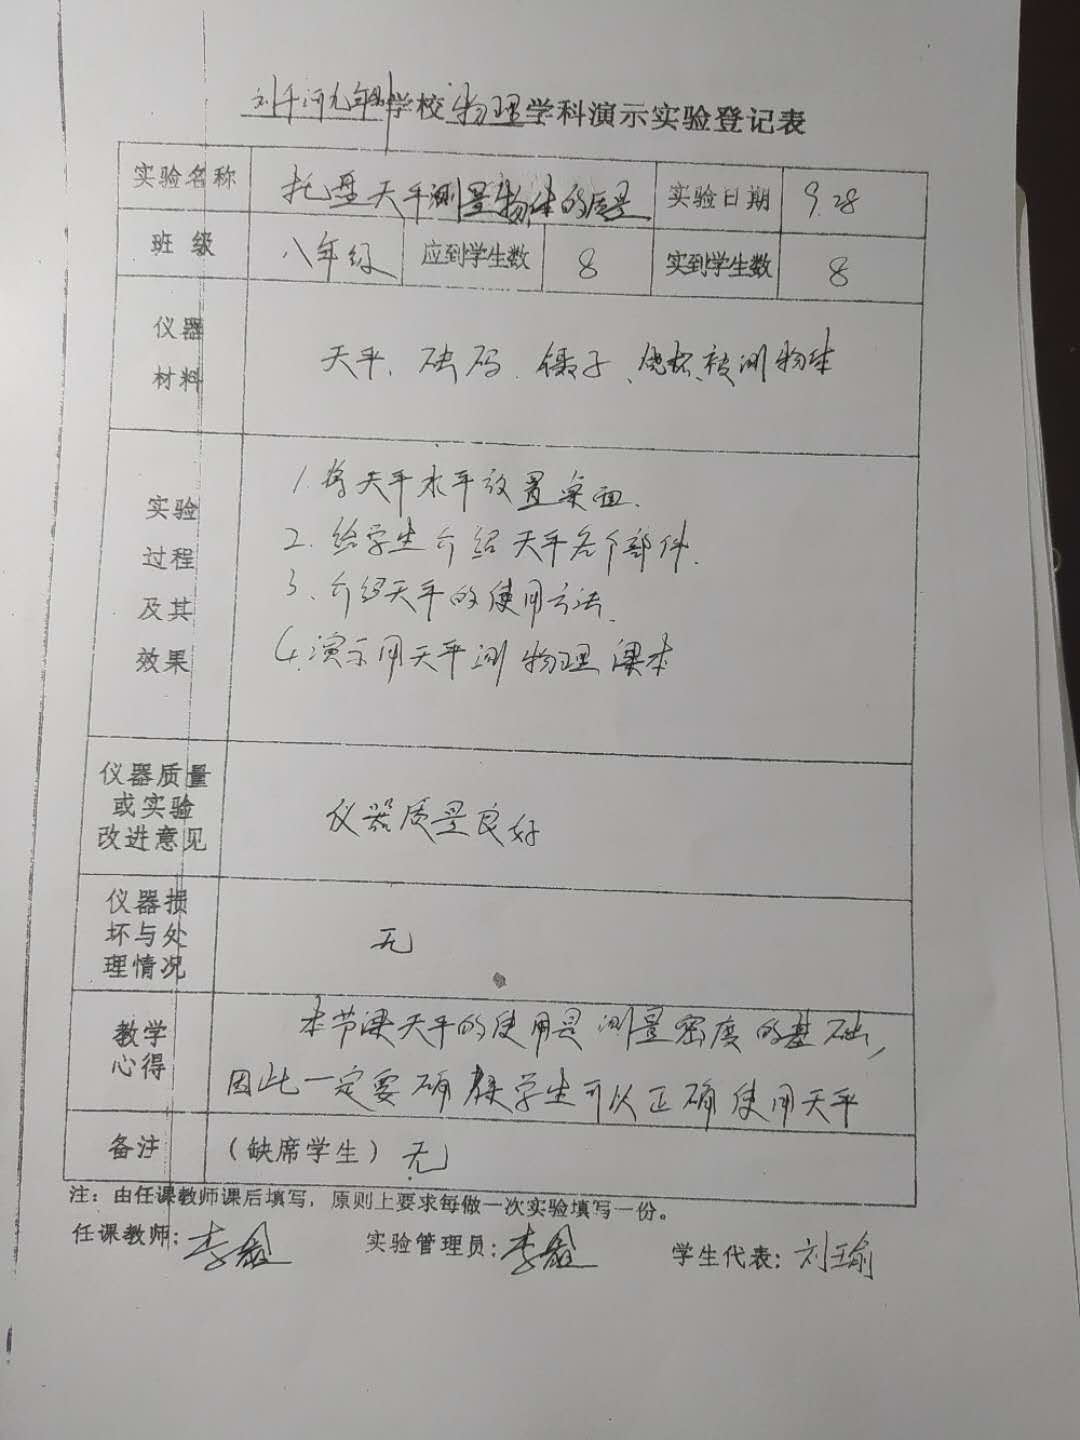 刘千河九年制学校物理学科演示实验登记表
实验名称 托盘天平测量物体的质量 实验日期 9.28
班 级 八年级 应到学生数 8 实到学生数 8
仪器
材料
天平、砝码、镊子、烧杯、被测物体
实验
过程
及其
效果
1.将天平水平放置桌面.
2.给学生介绍天平各个部件.
3、介绍天平的使用方法.
4.演示用天平测物理课本
仪器质量
或实验
改进意见
仪器质量良好
仪器损
坏与处
理情况
无
教学
心得
本节课天平的使用是测量密度的基础,
因此一定要确保学生可以正确使用天平
备注 (缺席学生) 无
注：由任课教师课后填写，原则上要求每做一次实验填写一份。
任课教师: 李 实验管理员: 李 学生代表: 刘瑜